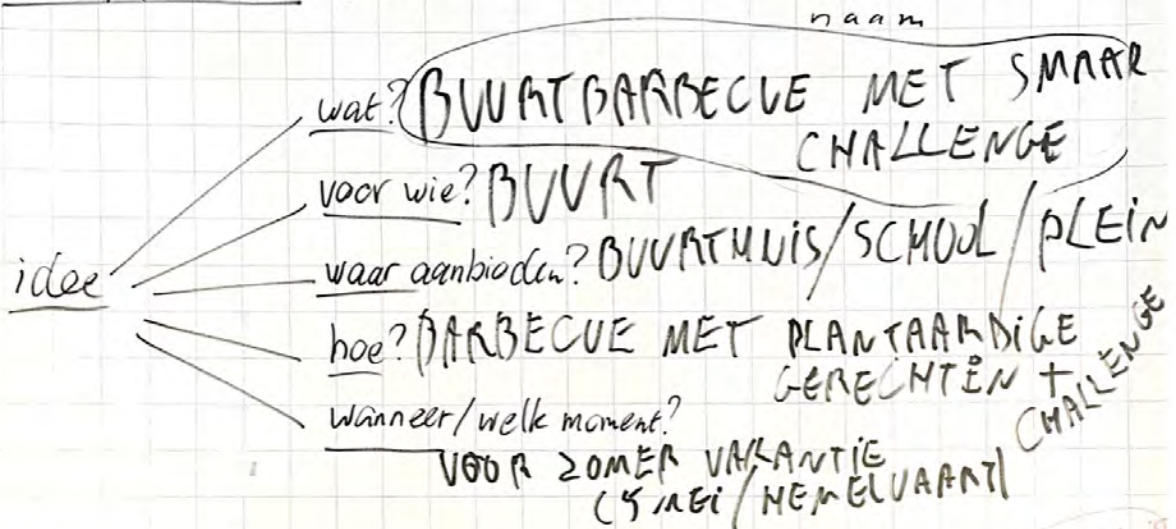 naam
wat? BUURTBARBECUE MET SMAAK
CHALLENGE
voor wie? BUURT
waar aanbieden? BUURTHUIS/SCHOOL/PLEIN
idee
hoe? BARBECUE MET PLANTAARDIGE
GERECHTEN +
CHALLENGE
wanneer/welk moment?
VOOR ZOMER VAKANTIE
(5 MEI/HEMELVAART)